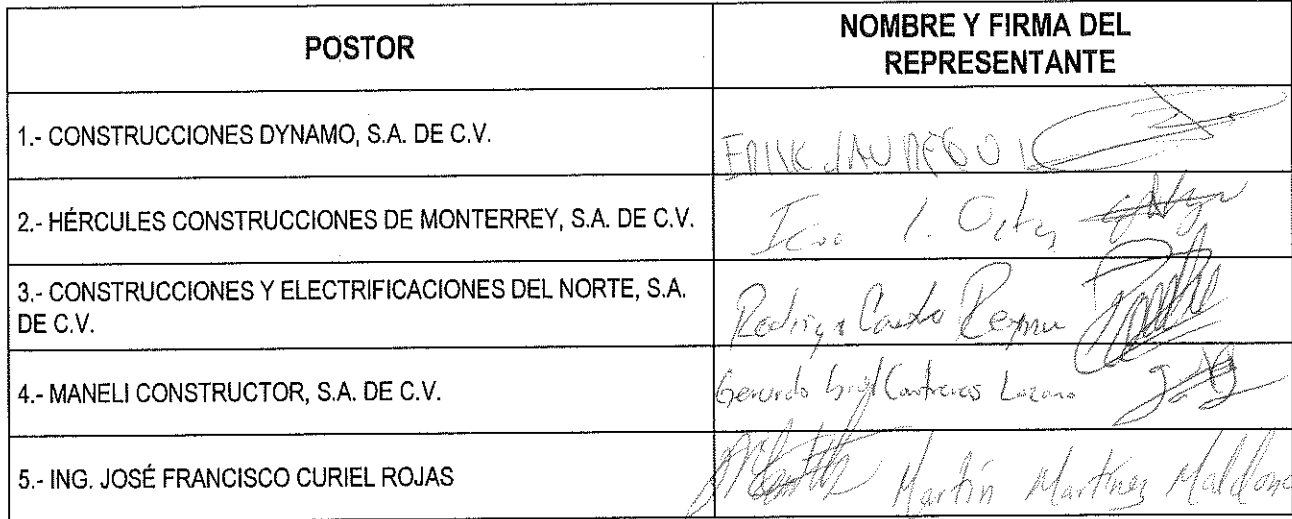 POSTOR
NOMBRE Y FIRMA DEL
REPRESENTANTE
1.- CONSTRUCCIONES DYNAMO, S.A. DE C.V.
ERIK JAUREGUI
2.- HÉRCULES CONSTRUCCIONES DE MONTERREY, S.A. DE C.V.
I.
3.- CONSTRUCCIONES Y ELECTRIFICACIONES DEL NORTE, S.A.
DE C.V.
Rodrigo
4.- MANELI CONSTRUCTOR, S.A. DE C.V.
Gerardo Contreras Lozano
5.- ING. JOSÉ FRANCISCO CURIEL ROJAS
Martín Martínez Maldona